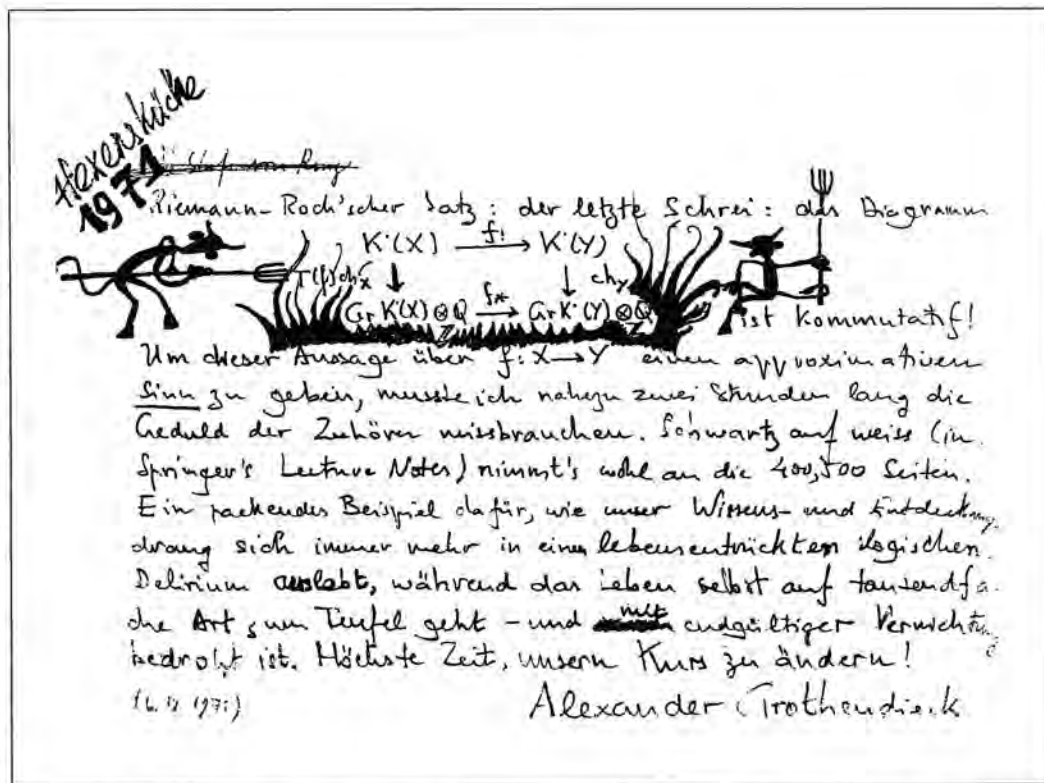 Hexenküche
1971
Riemann-Roch'scher Satz: der letzte Schrei: das Diagramm
K˙(X) —f!→ K˙(Y)
↓ T(f)chₓ ↓ ch_Y
Gr K˙(X)⊗Q —f*→ Gr K˙(Y)⊗Q
ist kommutatif!
Um dieser Aussage über f: X → Y einen approximativen
Sinn zu geben, musste ich nahezu zwei Stunden lang die
Geduld der Zuhörer missbrauchen. Schwartz auf weiss (in
Springer's Lecture Notes) nimmt's wohl an die 400, 500 Seiten.
Ein packendes Beispiel dafür, wie unser Wissens- und Entdeckungs
drang sich immer mehr in einem lebensentrückten logischen
Delirium auslebt, während das Leben selbst auf tausendfa-
che Art zum Teufel geht – und mit endgültiger Vernichtung
bedroht ist. Höchste Zeit, unsern Kurs zu ändern!
Alexander Grothendieck